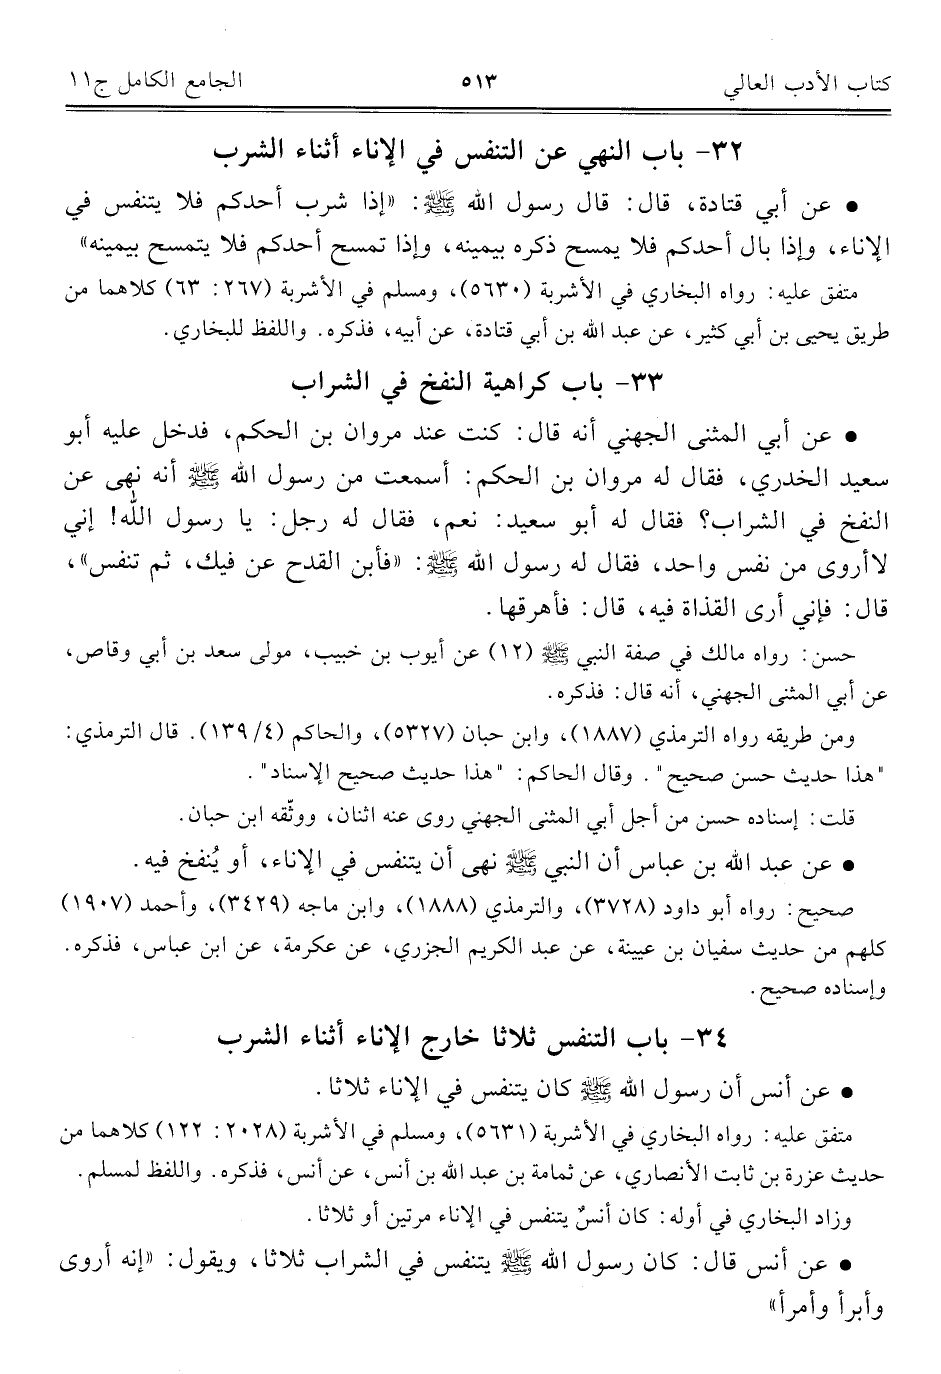 كتاب الأدب العالي ٥١٣ الجامع الكامل ج١١
٣٢- باب النهي عن التنفس في الإناء أثناء الشرب
• عن أبي قتادة، قال: قال رسول الله ﷺ: «إذا شرب أحدكم فلا يتنفس في
الإناء، وإذا بال أحدكم فلا يمسح ذكره بيمينه، وإذا تمسح أحدكم فلا يتمسح بيمينه»
متفق عليه: رواه البخاري في الأشربة (٥٦٣٠)، ومسلم في الأشربة (٢٦٧: ٦٣) كلاهما من
طريق يحيى بن أبي كثير، عن عبد الله بن أبي قتادة، عن أبيه، فذكره. واللفظ للبخاري.
٣٣- باب كراهية النفخ في الشراب
• عن أبي المثنى الجهني أنه قال: كنت عند مروان بن الحكم، فدخل عليه أبو
سعيد الخدري، فقال له مروان بن الحكم: أسمعت من رسول الله ﷺ أنه نهى عن
النفخ في الشراب؟ فقال له أبو سعيد: نعم، فقال له رجل: يا رسول الله! إني
لاأروى من نفس واحد، فقال له رسول الله ﷺ: «فأبن القدح عن فيك، ثم تنفس»،
قال: فإني أرى القذاة فيه، قال: فأهرقها.
حسن: رواه مالك في صفة النبي ﷺ (١٢) عن أيوب بن خبيب، مولى سعد بن أبي وقاص،
عن أبي المثنى الجهني، أنه قال: فذكره.
ومن طريقه رواه الترمذي (١٨٨٧)، وابن حبان (٥٣٢٧)، والحاكم (٤/ ١٣٩). قال الترمذي:
"هذا حديث حسن صحيح". وقال الحاكم: "هذا حديث صحيح الإسناد".
قلت: إسناده حسن من أجل أبي المثنى الجهني روى عنه اثنان، ووثّقه ابن حبان.
• عن عبد الله بن عباس أن النبي ﷺ نهى أن يتنفس في الإناء، أو يُنفخ فيه.
صحيح: رواه أبو داود (٣٧٢٨)، والترمذي (١٨٨٨)، وابن ماجه (٣٤٢٩)، وأحمد (١٩٠٧)
كلهم من حديث سفيان بن عيينة، عن عبد الكريم الجزري، عن عكرمة، عن ابن عباس، فذكره.
وإسناده صحيح.
٣٤- باب التنفس ثلاثا خارج الإناء أثناء الشرب
• عن أنس أن رسول الله ﷺ كان يتنفس في الإناء ثلاثا.
متفق عليه: رواه البخاري في الأشربة (٥٦٣١)، ومسلم في الأشربة (٢٠٢٨: ١٢٢) كلاهما من
حديث عزرة بن ثابت الأنصاري، عن ثمامة بن عبد الله بن أنس، عن أنس، فذكره. واللفظ لمسلم.
وزاد البخاري في أوله: كان أنسٌ يتنفس في الإناء مرتين أو ثلاثا.
• عن أنس قال: كان رسول الله ﷺ يتنفس في الشراب ثلاثا، ويقول: «إنه أروى
وأبرأ وأمرأ»